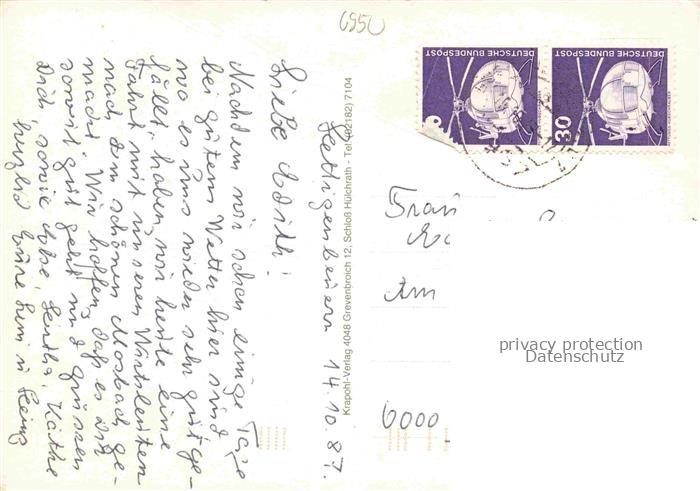 6950
Hettigenbeuern 14.10.87.
Liebe Edith!
Nachdem wir schon einige Tage
bei gutem Wetter hier sind
wo es uns wieder sehr gut ge-
fällt, haben wir heute eine
Fahrt mit unseren Wirtsleuten
nach dem schönen Mosbach ge-
macht. Wir hoffen, daß es Dir
soweit gut geht und grüssen
Dich, sowie Käthe
herzlich Eure u Heinz
Krapohl-Verlag 4048 Grevenbroich 12, Schloß Hülchrath - Tel. (02182) 7104
DEUTSCHE BUNDESPOST
DEUTSCHE BUNDESPOST
30
Frau
Am
6000
privacy protection
Datenschutz